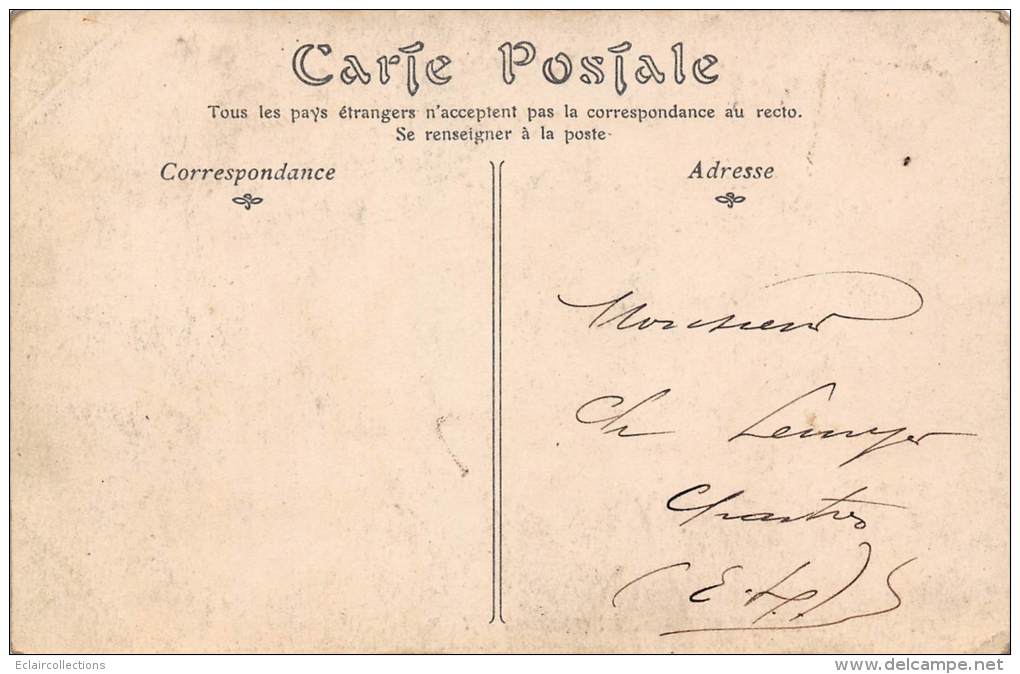 Carte Postale
Tous les pays étrangers n'acceptent pas la correspondance au recto.
Se renseigner à la poste
Correspondance
Adresse
Monsieur
Ch
Chartres
(E.-&-L.)
Eclaircollections
www.delcampe.net